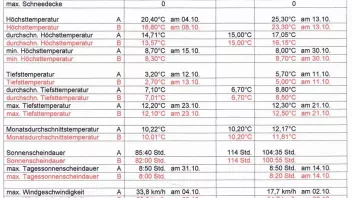 max. Schneedecke 0 0
Höchsttemperatur A 20,40°C am 04.10. 25,30°C am 13.10.
Höchsttemperatur B 18,80°C am 08.10. 23,30°C am 13.10.
durchschn. Höchsttemperatur A 14,71°C 15,00°C 17,05°C
durchschn. Höchsttemperatur B 13,57°C 15,00°C 16,15°C
min. Höchsttemperatur A 8,70°C am 15.10. 8,00°C am 30.10.
min. Höchsttemperatur B 8,30°C 8,70°C am 30.10.
Tiefsttemperatur A 3,20°C am 12.10. 5,70°C am 11.10.
Tiefsttemperatur B 2,70°C am 13.10. 5,00°C am 11.10.
durchschn. Tiefsttemperatur A 7,10°C 6,70°C 8,80°C
durchschn. Tiefsttemperatur B 7,01°C 6,70°C 8,50°C
max. Tiefsttemperatur A 12,20°C am 23.10. 12,30°C am 21.10.
max. Tiefsttemperatur B 12,10°C am 23.10. 12,50°C am 21.10.
Monatsdurchschnittstemperatur A 10,22°C 10,20°C 12,17°C
Monatsdurchschnittstemperatur B 10,01°C 10,20°C 11,81°C
Sonnenscheindauer A 85:40 Std. 114 Std. 104:35 Std.
Sonnenscheindauer B 82:00 Std. 114 Std. 100:55 Std.
max. Tagessonnenscheindauer A 8:50 Std. am 31.10. 8:50 Std. am 14.10.
max. Tagessonnenscheindauer B 8:00 Std. 8:20 Std. am 14.10.
max. Windgeschwindigkeit A 33,8 km/h am 04.10. 17,7 km/h am 02.10.